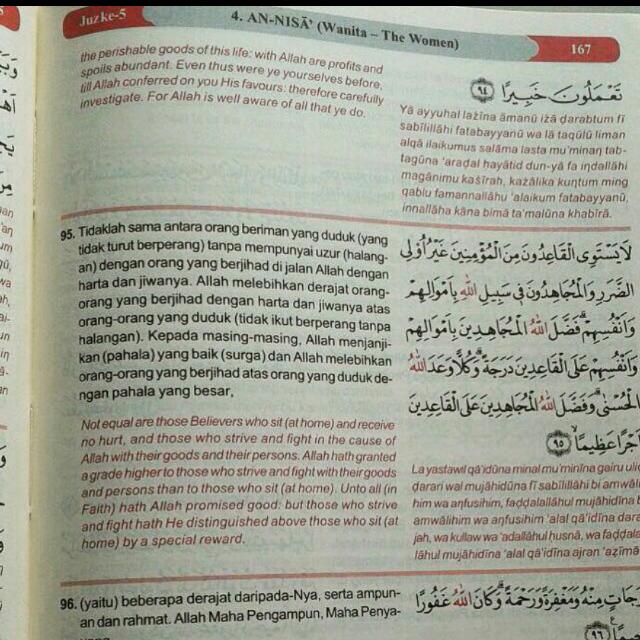 Juz ke-5
4. AN-NISĀ' (Wanita – The Women)
167
the perishable goods of this life: with Allah are profits and
spoils abundant. Even thus were ye yourselves before,
till Allah conferred on you His favours: therefore carefully
investigate. For Allah is well aware of all that ye do.
تَعْمَلُونَ خَبِيرًا ٩٤
Yā ayyuhal lażīna āmanū iżā ḍarabtum fī
sabīlillāhi fatabayyanū wa lā taqūlū liman
alqā ilaikumus salāma lasta mu'minan tab-
tagūna 'araḍal ḥayātid dun-yā fa indallāhi
magānimu kaṡīrah, każālika kuntum ming
qablu famannallāhu 'alaikum fatabayyanū,
innallāha kāna bimā ta'malūna khabīrā.
95. Tidaklah sama antara orang beriman yang duduk (yang
tidak turut berperang) tanpa mempunyai uzur (halang-
an) dengan orang yang berjihad di jalan Allah dengan
harta dan jiwanya. Allah melebihkan derajat orang-
orang yang berjihad dengan harta dan jiwanya atas
orang-orang yang duduk (tidak ikut berperang tanpa
halangan). Kepada masing-masing, Allah menjanji-
kan (pahala) yang baik (surga) dan Allah melebihkan
orang-orang yang berjihad atas orang yang duduk de-
ngan pahala yang besar,
Not equal are those Believers who sit (at home) and receive
no hurt, and those who strive and fight in the cause of
Allah with their goods and their persons. Allah hath granted
a grade higher to those who strive and fight with their goods
and persons than to those who sit (at home). Unto all (in
Faith) hath Allah promised good: but those who strive
and fight hath He distinguished above those who sit (at
home) by a special reward.
لَا يَسْتَوِى الْقَاعِدُونَ مِنَ الْمُؤْمِنِينَ غَيْرُ أُولِى
الضَّرَرِ وَالْمُجَاهِدُونَ فِى سَبِيلِ اللهِ بِأَمْوَالِهِمْ
وَأَنْفُسِهِمْ فَضَّلَ اللهُ الْمُجَاهِدِينَ بِأَمْوَالِهِمْ
وَأَنْفُسِهِمْ عَلَى الْقَاعِدِينَ دَرَجَةً وَكُلًّا وَعَدَ اللهُ
الْحُسْنَى وَفَضَّلَ اللهُ الْمُجَاهِدِينَ عَلَى الْقَاعِدِينَ
أَجْرًا عَظِيمًا ٩٥
La yastawil qā'idūna minal mu'minīna gairu uli
ḍarari wal mujāhidūna fī sabīlillāhi bi amwāli
him wa anfusihim, faḍḍalallāhul mujāhidīna b
amwālihim wa anfusihim 'alal qā'idīna dara
jah, wa kullaw wa 'adallāhul ḥusnā, wa faḍḍala
lāhul mujāhidīna 'alal qā'idīna ajran 'aẓīmā
96. (yaitu) beberapa derajat daripada-Nya, serta ampun-
an dan rahmat. Allah Maha Pengampun, Maha Penya-
دَرَجَاتٍ مِنْهُ وَمَغْفِرَةً وَرَحْمَةً وَكَانَ اللهُ غَفُورًا
٩٦